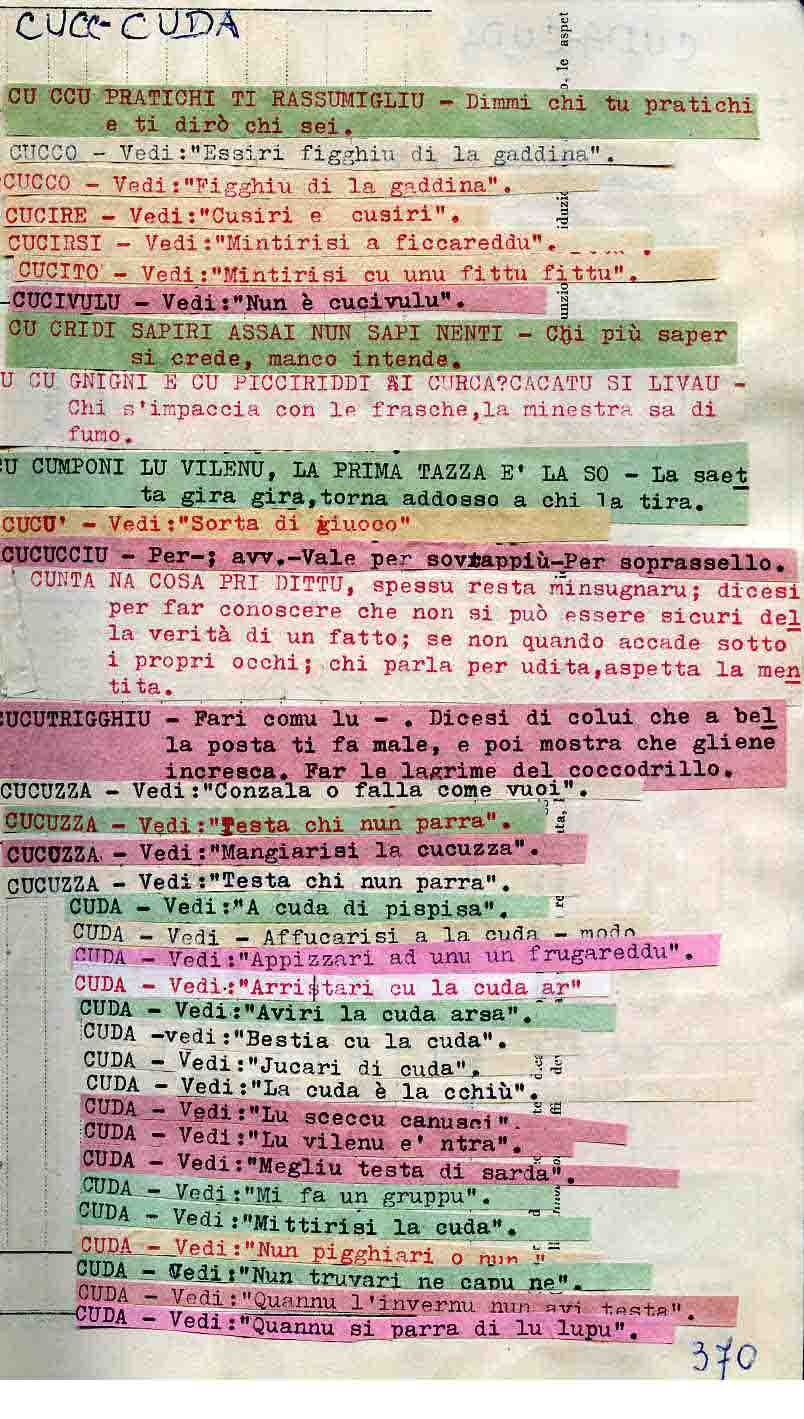 CUCC-CUDA
CU CCU PRATICHI TI RASSUMIGLIU - Dimmi chi tu pratichi
e ti dirò chi sei.
CUCCO - Vedi:"Essiri figghiu di la gaddina".
CUCCO - Vedi:"Figghiu di la gaddina".
CUCIRE - Vedi:"Cusiri e cusiri".
CUCIRSI - Vedi:"Mintirisi a ficcareddu".
CUCITO - Vedi:"Mintirisi cu unu fittu fittu".
CUCIVULU - Vedi:"Nun è cucivulu".
CU CRIDI SAPIRI ASSAI NUN SAPI NENTI - Chi più saper
si crede, manco intende.
U CU GNIGNI E CU PICCIRIDDI CURCA?CACATU SI LIVAU -
Chi s'impaccia con le frasche,la minestra sa di
fumo.
U CUMPONI LU VILENU, LA PRIMA TAZZA E' LA SO - La saet
ta gira gira,torna addosso a chi la tira.
CUCU' - Vedi:"Sorta di giuoco"
CUCUCCIU - Per-; avv.-Vale per sovrappiù-Per soprassello.
CUNTA NA COSA PRI DITTU, spessu resta minsugnaru; dicesi
per far conoscere che non si può essere sicuri del
la verità di un fatto; se non quando accade sotto
i propri occhi; chi parla per udita,aspetta la men
tita.
UCUTRIGGHIU - Fari comu lu - . Dicesi di colui che a bel
la posta ti fa male, e poi mostra che gliene
incresca. Far le lagrime del coccodrillo.
CUCUZZA - Vedi:"Conzala o falla come vuoi".
CUCUZZA - Vedi:"Testa chi nun parra".
CUCUZZA - Vedi:"Mangiarisi la cucuzza".
CUCUZZA - Vedi:"Testa chi nun parra".
CUDA - Vedi:"A cuda di pispisa".
CUDA - Vedi - Affucarisi a la cuda - modo
CUDA - Vedi:"Appizzari ad unu un frugareddu".
CUDA - Vedi:"Arristari cu la cuda ar"
CUDA - Vedi:"Aviri la cuda arsa".
CUDA -vedi:"Bestia cu la cuda".
CUDA - Vedi:"Jucari di cuda".
CUDA - Vedi:"La cuda è la cchiù".
CUDA - Vedi:"Lu sceccu canusci".
CUDA - Vedi:"Lu vilenu e' ntra".
CUDA - Vedi:"Megliu testa di sarda".
CUDA - Vedi:"Mi fa un gruppu".
CUDA - Vedi:"Mittirisi la cuda".
CUDA - Vedi:"Nun pigghiari o nun "
CUDA - Vedi:"Nun truvari ne capu ne".
CUDA - Vedi:"Quannu l'invernu nun avi testa".
CUDA - Vedi:"Quannu si parra di lu lupu".
370